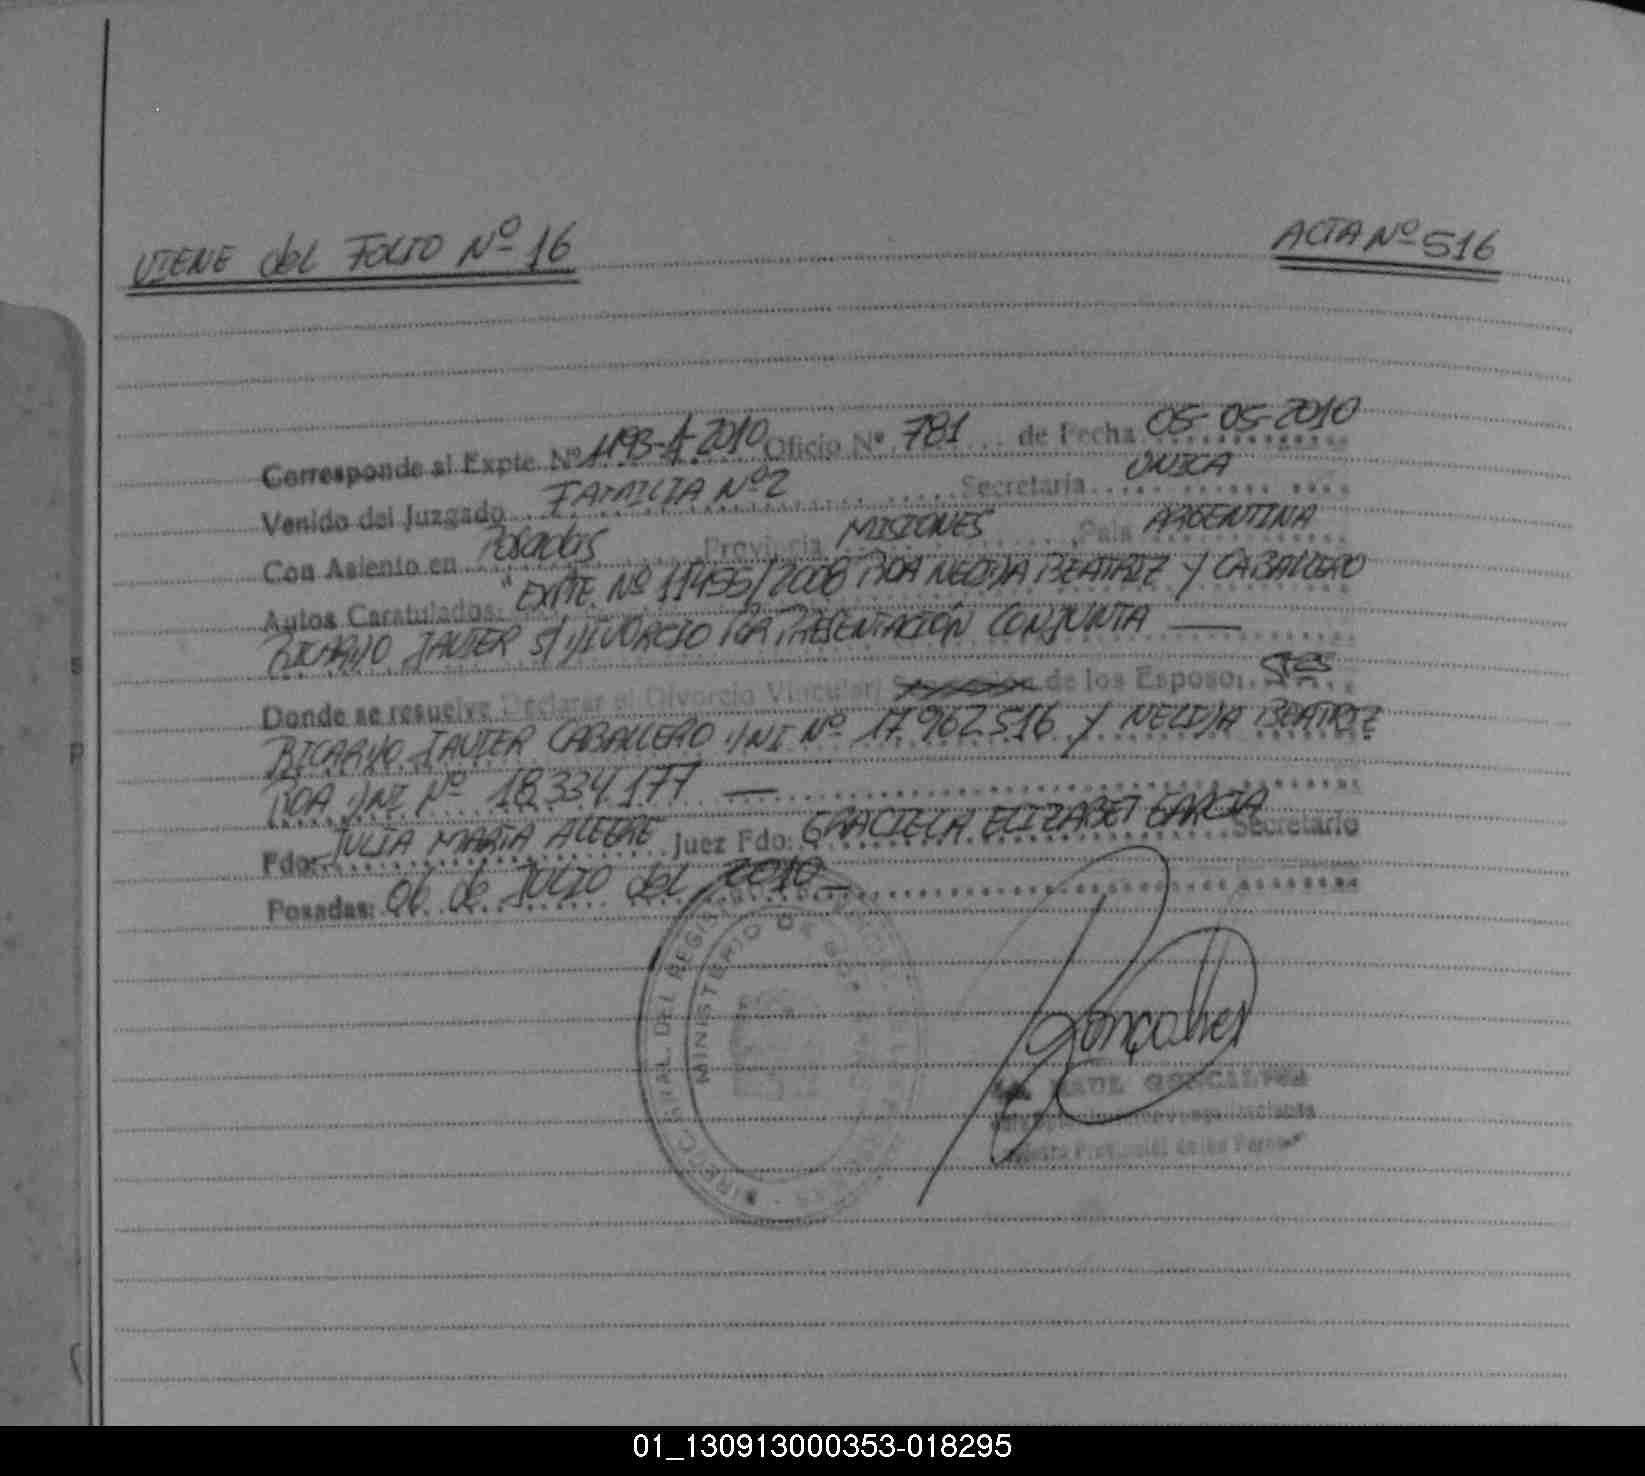 VIENE del FOLIO Nº 16
ACTA Nº 516
Corresponde al Expte. Nº 1193-A-2010 Oficio Nº 781 de Fecha 05-05-2010
Venido del Juzgado FAMILIA Nº 2 Secretaría UNICA
Con Asiento en Posadas Provincia MISIONES País ARGENTINA
Autos Caratulados: "EXPTE. Nº /2008 BOA NELIDA BEATRIZ Y CABALLERO
RICARDO JAVIER S/ DIVORCIO POR PRESENTACIÓN CONJUNTA
Donde se resuelve Declarar el Divorcio Vincular/ de los Esposo:
RICARDO JAVIER CABALLERO DNI Nº 17.962.516 Y NELIDA BEATRIZ
BOA DNI Nº 18.334.177
Fdo: JULIA MARIA ALEGRE Juez Fdo: GRACIELA ELIZABET GARCIA Secretario
Posadas: 06 de JULIO del 2010
MINISTERIO DE GOB.
Gonçalves
RAUL GONCALVES
01_130913000353-018295